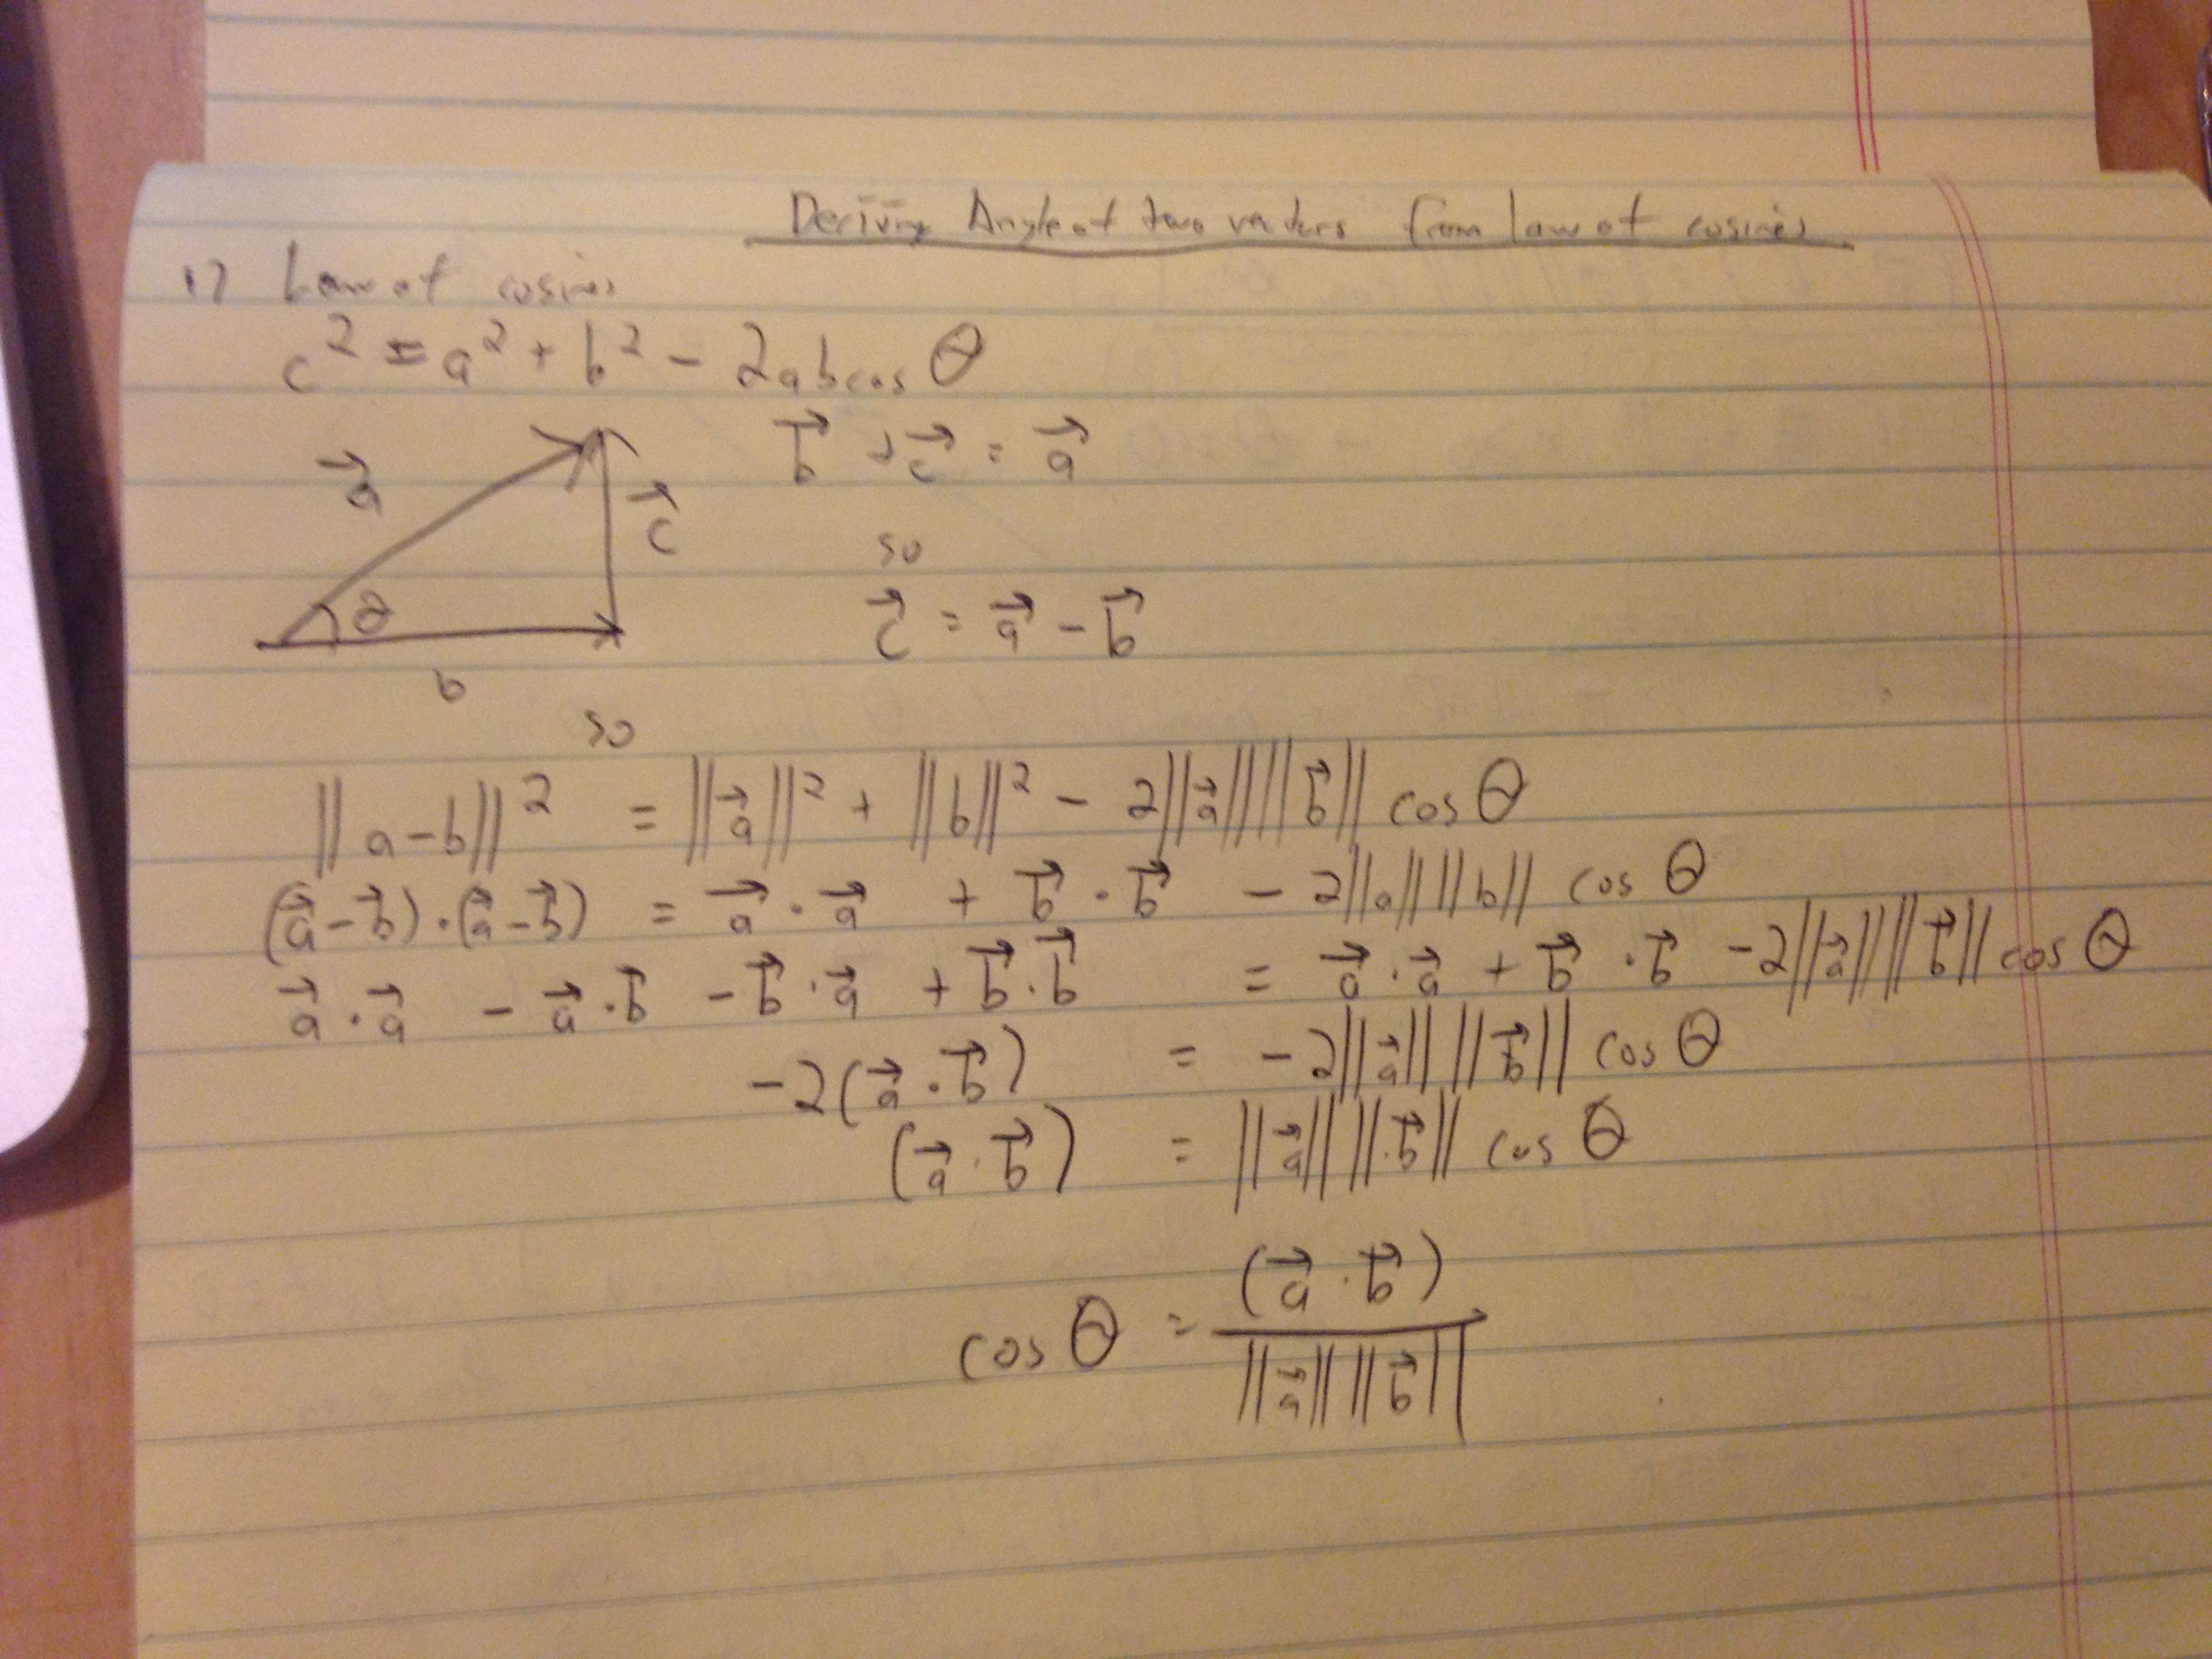 Deriving Angle of two vectors from law of cosines
1) Law of cosines
c² = a² + b² - 2abcosθ
a⃗
b⃗ + c⃗ = a⃗
θ
c⃗
so
b
c⃗ = a⃗ - b⃗
so
||a-b||² = ||a⃗||² + ||b||² - 2||a⃗|| ||b⃗|| cosθ
(a⃗-b⃗)·(a⃗-b⃗) = a⃗·a⃗ + b⃗·b⃗ - 2||a|| ||b|| cosθ
a⃗·a⃗ - a⃗·b⃗ - b⃗·a⃗ + b⃗·b⃗ = a⃗·a⃗ + b⃗·b⃗ - 2||a⃗|| ||b⃗|| cosθ
-2(a⃗·b⃗) = -2||a⃗|| ||b⃗|| cosθ
(a⃗·b⃗) = ||a⃗|| ||b⃗|| cosθ
cosθ = (a⃗·b⃗) / ||a⃗|| ||b⃗||